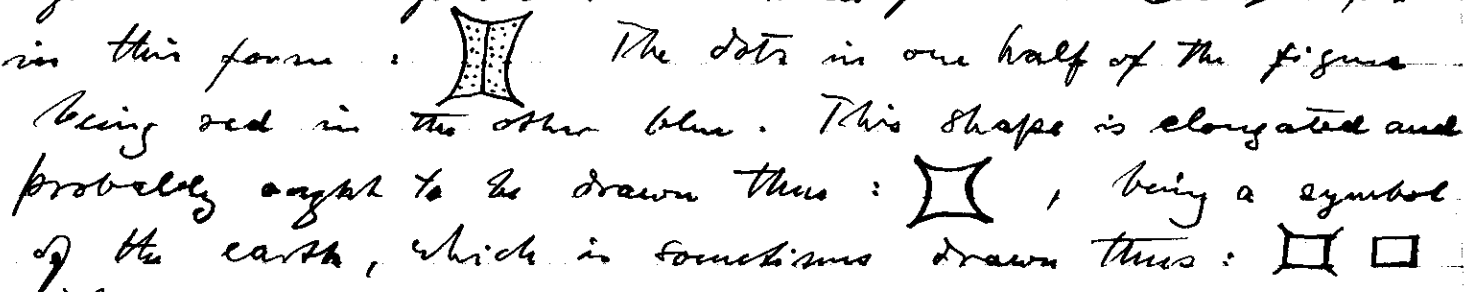 in this form : The dots in one half of the figure
being red in the other blue. This shape is elongated and
probably ought to be drawn thus : , being a symbol
of the earth, which is sometimes drawn thus :